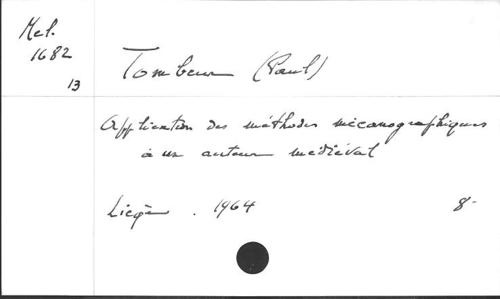 Mel.
1682
13
Tombeur (Paul)
Application des méthodes mécanographiques
à un auteur médiéval
Liège . 1964 8-